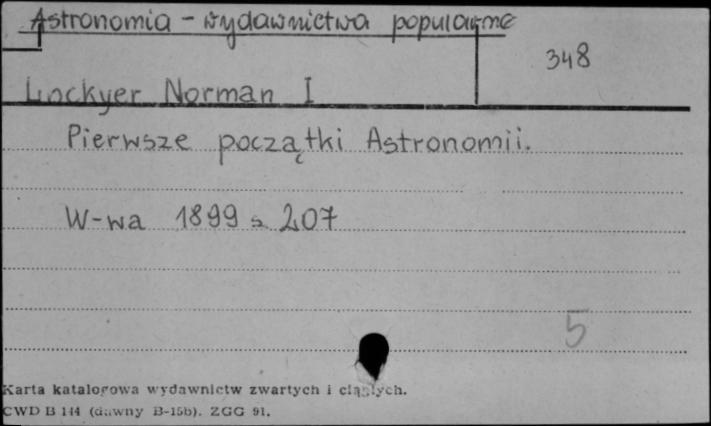 Astronomia - wydawnictwa popularne
348
Lockyer Norman I
Pierwsze początki Astronomii.
W-wa 1899 s. 207
5
Karta katalogowa wydawnictw zwartych i ciągłych.
CWD B 144 (dawny B-15b). ZGG 91.